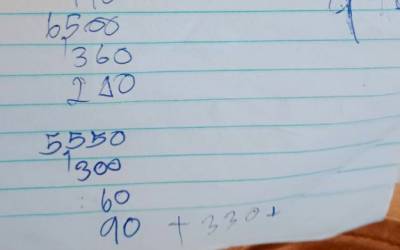 6500
1360
210
5550
1300
60
90 + 330+